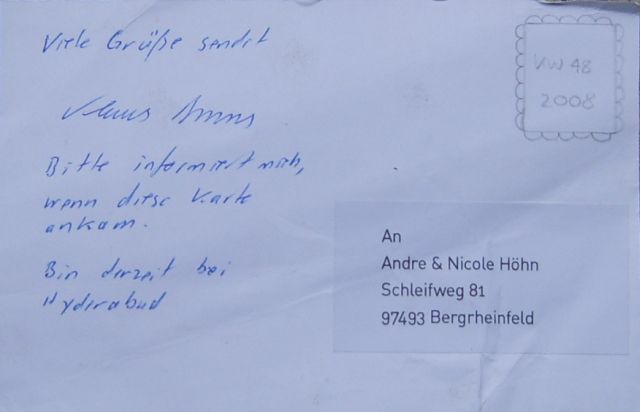 Viele Grüße sendet
Bitte informiert mich,
wenn diese Karte
ankam.
Bin derzeit bei
Hyderabad
VW 48
2008
An
Andre & Nicole Höhn
Schleifweg 81
97493 Bergrheinfeld